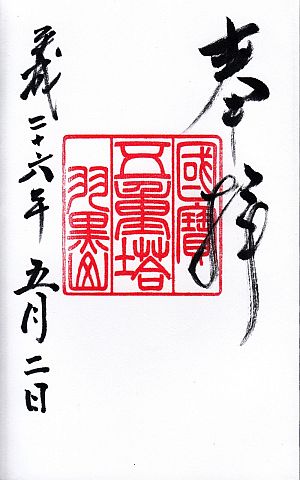 奉拝
國寶
五重塔
羽黒山
平成二十六年五月二日